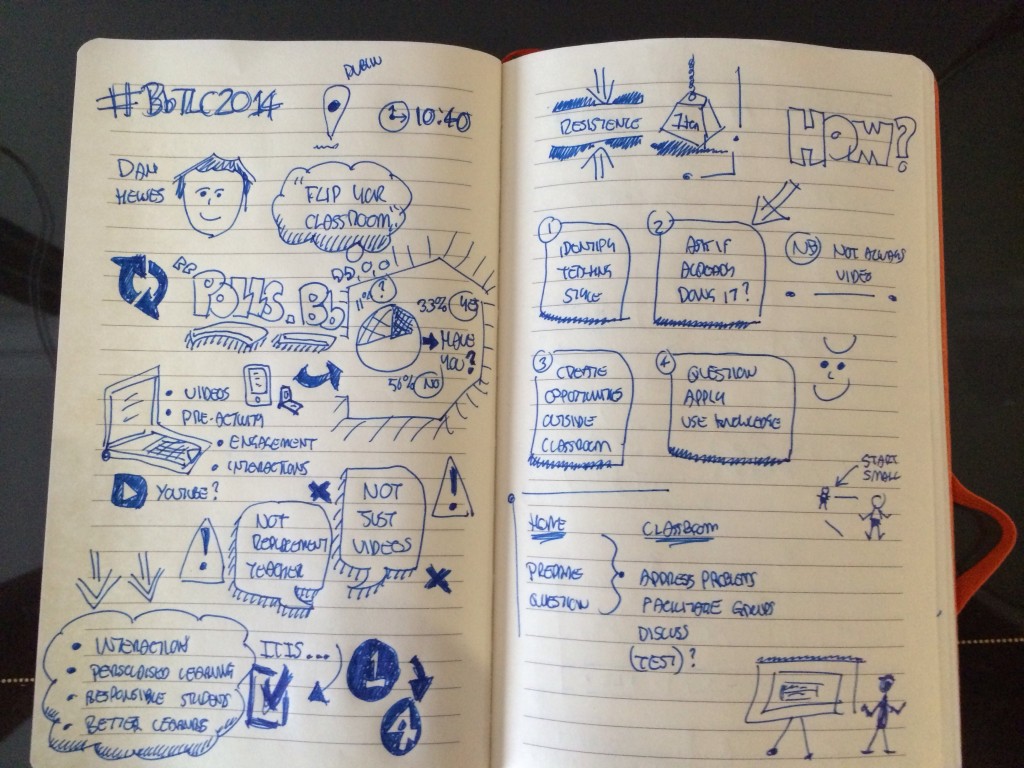 #BbTLC2014
DUBLIN
10:40
DAN
HEWES
"FLIP YOUR
CLASSROOM"
POLLS.Bb
11% ?
33% YES
HAVE
YOU?
56% NO
• VIDEOS
• PRE-ACTIVITY
• ENGAGEMENT
• INTERACTIONS
YOUTUBE?
!
NOT
REPLACEMENT
TEACHER
NOT
JUST
VIDEOS
!
• INTERACTION
• PERSOLISED LEARNING
• RESPONSIBLE STUDENTS
• BETTER LEARNING
IT IS...
1
4
RESISTENCE
1 ton
HOW?
1
IDENTIFY
TEACHING
STYLE
2
ASK IF
ALREADY
DOING IT?
NB
NOT ALWAYS
VIDEO
3
CREATE
OPPORTUNITIES
OUTSIDE
CLASSROOM
4
QUESTION
APPLY
USE KNOWLEDGE
START
SMALL
HOME
PREPARE
QUESTION
CLASSROOM
ADDRESS PROBLEMS
FACILITATE GROUPS
DISCUSS
(TEST)?